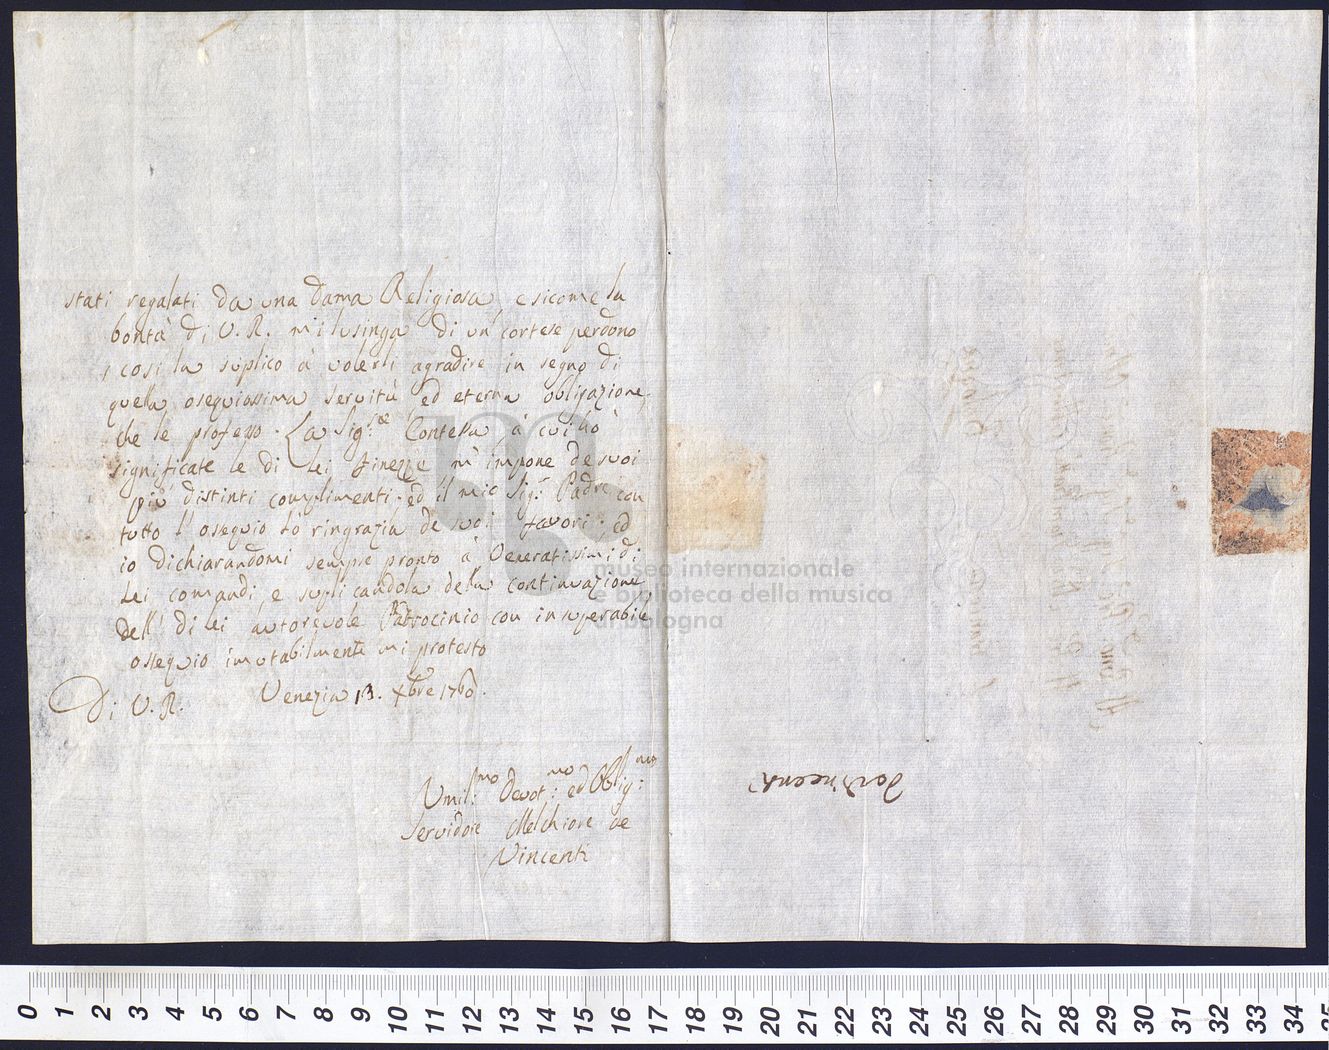 stati regalati da una Dama Religiosa, e sicome la
bontà di V. R. mi lusinga di un cortese perdono
cosi la suplico à volerli agradire in segno di
quella osequiosissima servitù ed eterna obligazione
che le professo. La Sig.ra Contessa à cui hò
significate le di Lei finezze m'impone de suoi
più distinti complimenti. ed il mio Sig.r Padre con
tutto l'osequio Lo ringrazia de suoi favori. ed
io dichiarandomi sempre pronto à Veneratissimi di
Lei comandi, e suplicandola della continuazione
dell' di Lei autorevole Patrocinio con insuperabile
ossequio imutabilmente mi protesto
Di V. R. Venezia 13. Xbre 1760.
Umil.mo Devot.mo ed Oblig.mo
Servidore Melchiore de
Vincenti
museo internazionale
e biblioteca della musica
di bologna
0 1 2 3 4 5 6 7 8 9 10 11 12 13 14 15 16 17 18 19 20 21 22 23 24 25 26 27 28 29 30 31 32 33 34 35